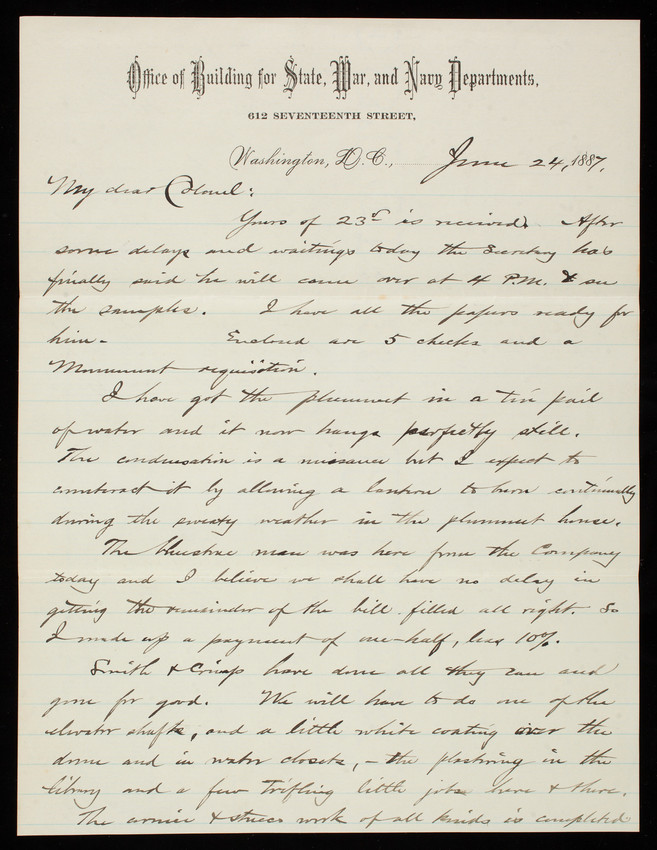 Office of Building for State, War, and Navy Departments,
612 SEVENTEENTH STREET,
Washington, D.C., June 24, 1887.
My dear Colonel:
Yours of 23rd is received. After
some delays and waitings today the Secretary has
finally said he will come over at 4 P.M. & see
the samples. I have all the papers ready for
him - Enclosed are 5 checks and a
Monument requisition.
I have got the plummet in a tin pail
of water and it now hangs perfectly still.
The condensation is a nuisance but I expect to
counteract it by allowing a lantern to burn continually
during the sweaty weather in the plummet house.
The man was here from the Company
today and I believe we shall have no delay in
getting the remainder of the bill filled all right. So
I made up a payment of one-half, less 10%.
Smith & Crisp have done all they can and
gone for good. We will have to do one of the
elevator shafts, and a little white coating over the
dome and in water closets, - the plastering in the
library and a few trifling little jobs here & there.
The cornice & stucco work of all kinds is completed